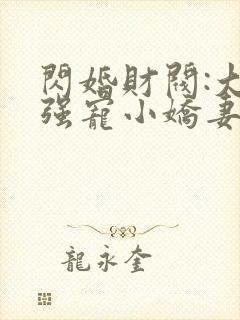 閃婚財閥:大
强寵小嬌妻
龍永奎